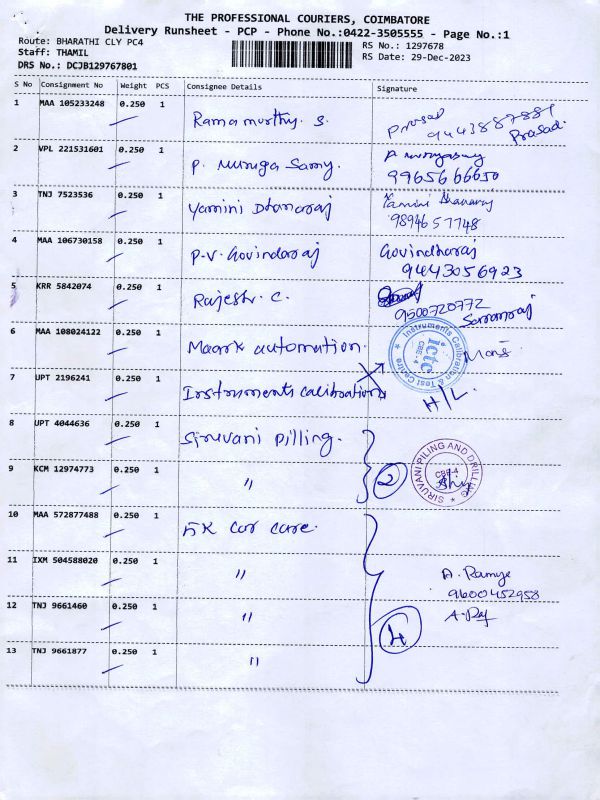 THE PROFESSIONAL COURIERS, COIMBATORE
Delivery Runsheet - PCP - Phone No.:0422-3505555 - Page No.:1
Route: BHARATHI CLY PC4
RS No.: 1297678
Staff: THAMIL
RS Date: 29-Dec-2023
DRS No.: DCJB129767801
S No Consignment No Weight PCS Consignee Details Signature
1 MAA 105233248 0.250 1 Ramamurthy. S. Prasad 9443887881 Prasad.
2 VPL 221531601 0.250 1 P. Muruga Samy. 9965666650
3 TNJ 7523536 0.250 1 Yamini Dhanaraj Yamini Dhanaraj 9894657748
4 MAA 106730158 0.250 1 P.V. Govindaraj Govindharaj 9443056923
5 KRR 5842074 0.250 1 Rajesh. C. 9500720772
6 MAA 108024122 0.250 1 Maark automation.
7 UPT 2196241 0.250 1 Instruments calibration H/L
Instruments Calibration & Test Centre ★ ictc CBE-4
8 UPT 4044636 0.250 1 Siruvani Pilling.
9 KCM 12974773 0.250 1 " 2
SIRUVANI PILING AND DRILLING ★ CBE-4
10 MAA 572877488 0.250 1 AK Car Care.
11 IXM 504588020 0.250 1 " A. Ramya 9600452958
12 TNJ 9661460 0.250 1 " 4
13 TNJ 9661877 0.250 1 "